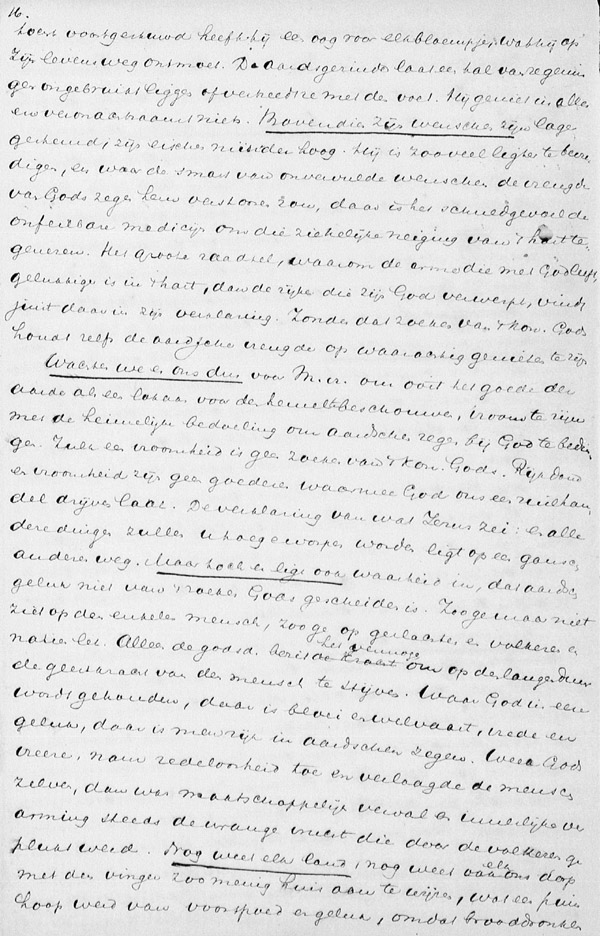 16.
voort voortgestuwd heeft hij een oog voor elk bloempje, wat hij op
zijn levensweg ontmoet. De aardsgezinden laat een tal van zegenin
gen ongebruikt liggen of vertreedt ze met den voet. Hij geniet in alles
en veronachtzaamt niets. Bovendien zijn wenschen zijn lager
gestemd, zijn eischen minder hoog. Hij is zooveel lichter te bevre
digen, en waar de smart van onvervulde wenschen de vreugde
van Gods zegen hem verstoren zou, daar is het schuldgevoel de
onfeilbare medicijn om die ziekelijke neiging van 't hart te
genezen. Het groote raadsel, waarom de arme die met God leeft,
gelukkiger is in 't hart, dan de rijke die zijn God verwerpt, vindt
juist daar in zijn verklaring. Zonder dat zoeken van 't Kon. Gods
houdt zelfs de aardsche vreugde op waarachtig genieten te zijn
Wachten we er ons dus voor M. vr. om ooit het goede der
aarde als een lokaas voor den hemel te beschouwen, vroom te zijn
met de heimelijke bedoeling om aardschen zegen bij God te bedin
gen. Zulk een vroomheid is geen zoeken van 't Kon. Gods. Rijkdom
en vroomheid zijn geen goederen waarmee God ons een ruilhan
del drijven laat. De verklaring van wat Jezus zei: en alle
deze dingen zullen u toegeworpen worden ligt op een gansch
anderen weg. Maar toch er ligt ook waarheid in, dat aardsch
geluk niet van 't zoeken Gods gescheiden is. Zoo ge maar niet
ziet op den enkelen mensch, zoo ge op geslachten en volkeren en
natiën let. Alleen de godsd. bezit het vermogen om op den langen duur
de geestkracht van den mensch te stijven. Waar God in eere
wordt gehouden, daar is bloei en welvaart, vrede en
geluk, daar is men rijk in aardschen zegen. Week Gods
vreeze, nam zedeloosheid toe en verlaagde de mensch
zich zelven, dan was maatschappelijk verval en innerlijke ver
arming steeds de wrange vrucht die door de volkeren ge
plukt werd. Nog weet elk land, nog weet elk ons dorp
met den vinger zoo menig huis aan te wijzen, wat een puin
hoop werd van voorspoed en geluk, omdat brooddronken